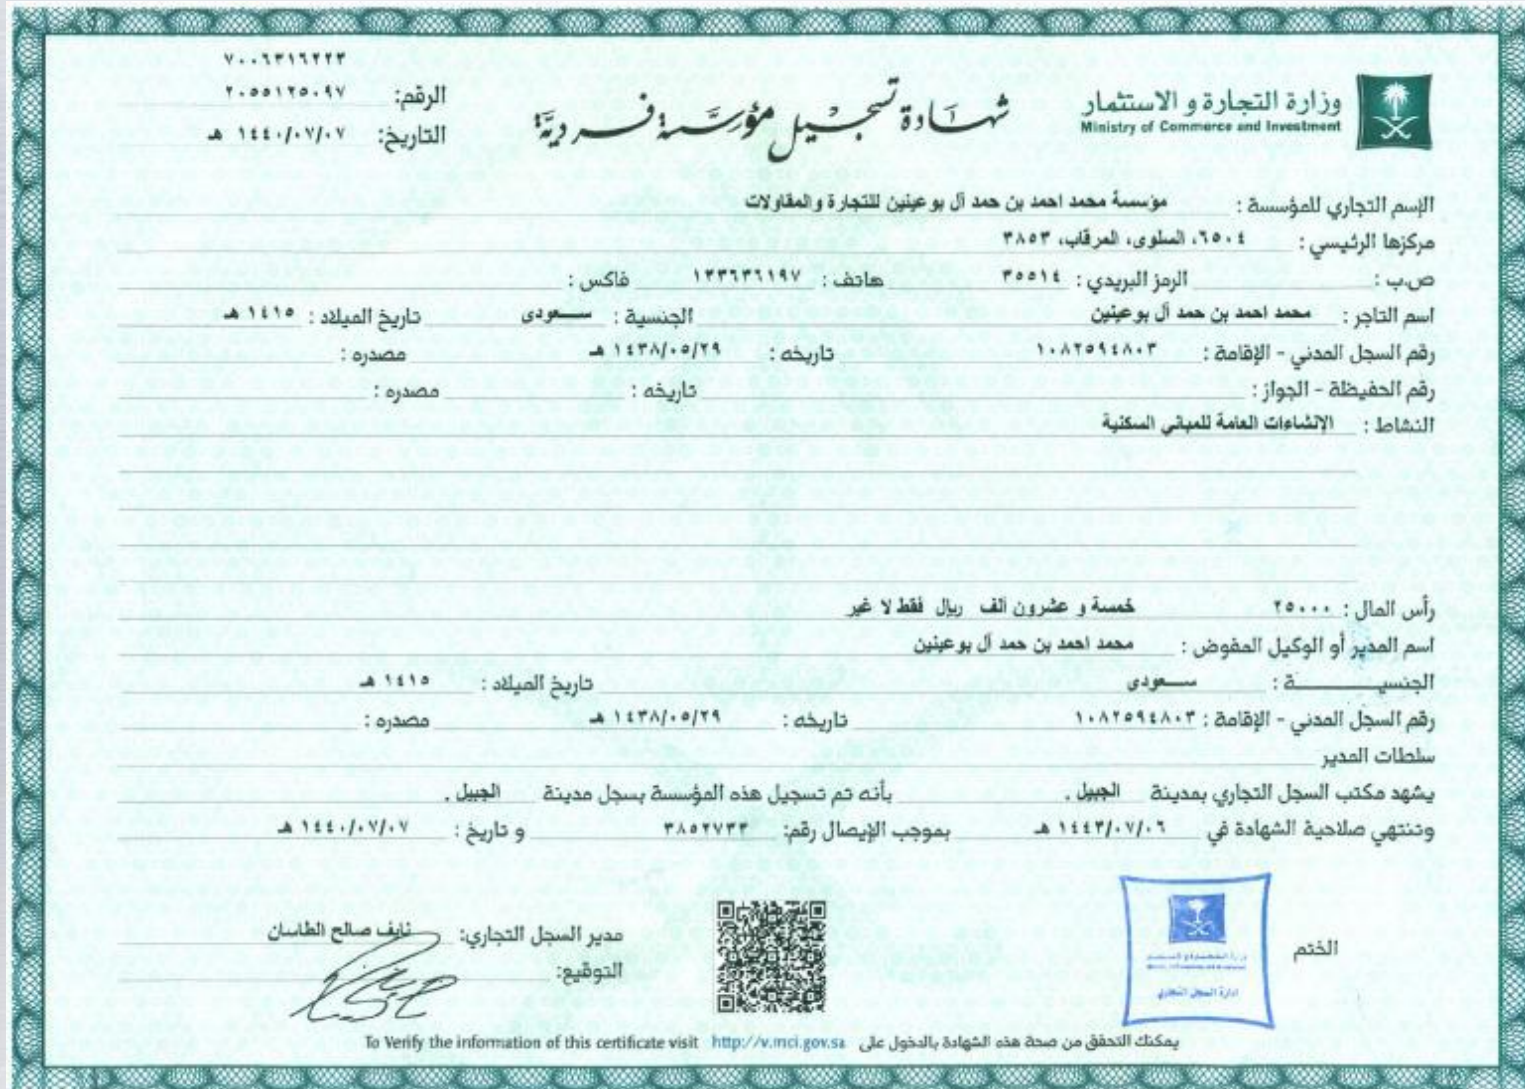 ٧٠٠٦٣١٦٢٢٣
الرقم: ٢٠٥٥١٢٥٠٩٧
التاريخ: ١٤٤٠/٠٧/٠٧ هـ
شهادة تسجيل مؤسسة فردية
وزارة التجارة و الاستثمار
Ministry of Commerce and Investment
الإسم التجاري للمؤسسة : مؤسسة محمد احمد بن حمد آل بوعينين للتجارة والمقاولات
مركزها الرئيسي : ٦٥٠٤، السلوى، المرقاب، ٣٨٥٣
ص.ب : الرمز البريدي : ٣٥٥١٤ هاتف : ١٣٣٦٣٦١٩٧ فاكس :
اسم التاجر : محمد احمد بن حمد آل بوعينين الجنسية : سعودى تاريخ الميلاد : ١٤١٥ هـ
رقم السجل المدني - الإقامة : ١٠٨٢٥٩٤٨٠٣ تاريخه : ١٤٣٨/٠٥/٢٩ هـ مصدره :
رقم الحفيظة - الجواز : تاريخه : مصدره :
النشاط : الإنشاءات العامة للمباني السكنية
رأس المال : ٢٥٠٠٠ خمسة و عشرون ألف ريال فقط لا غير
اسم المدير أو الوكيل المفوض : محمد احمد بن حمد آل بوعينين
الجنسيـــــة : سعودى تاريخ الميلاد : ١٤١٥ هـ
رقم السجل المدني - الإقامة : ١٠٨٢٥٩٤٨٠٣ تاريخه : ١٤٣٨/٠٥/٢٩ هـ مصدره :
سلطات المدير
يشهد مكتب السجل التجاري بمدينة الجبيل . بأنه تم تسجيل هذه المؤسسة بسجل مدينة الجبيل .
وتنتهي صلاحية الشهادة في ١٤٤٣/٠٧/٠٦ هـ بموجب الإيصال رقم: ٣٨٥٢٧٣٣ و تاريخ : ١٤٤٠/٠٧/٠٧ هـ
الختم
ادارة السجل التجاري
مدير السجل التجاري: نايف صالح الطاسان
التوقيع:
يمكنك التحقق من صحة هذه الشهادة بالدخول على http://v.mci.gov.sa To Verify the information of this certificate visit